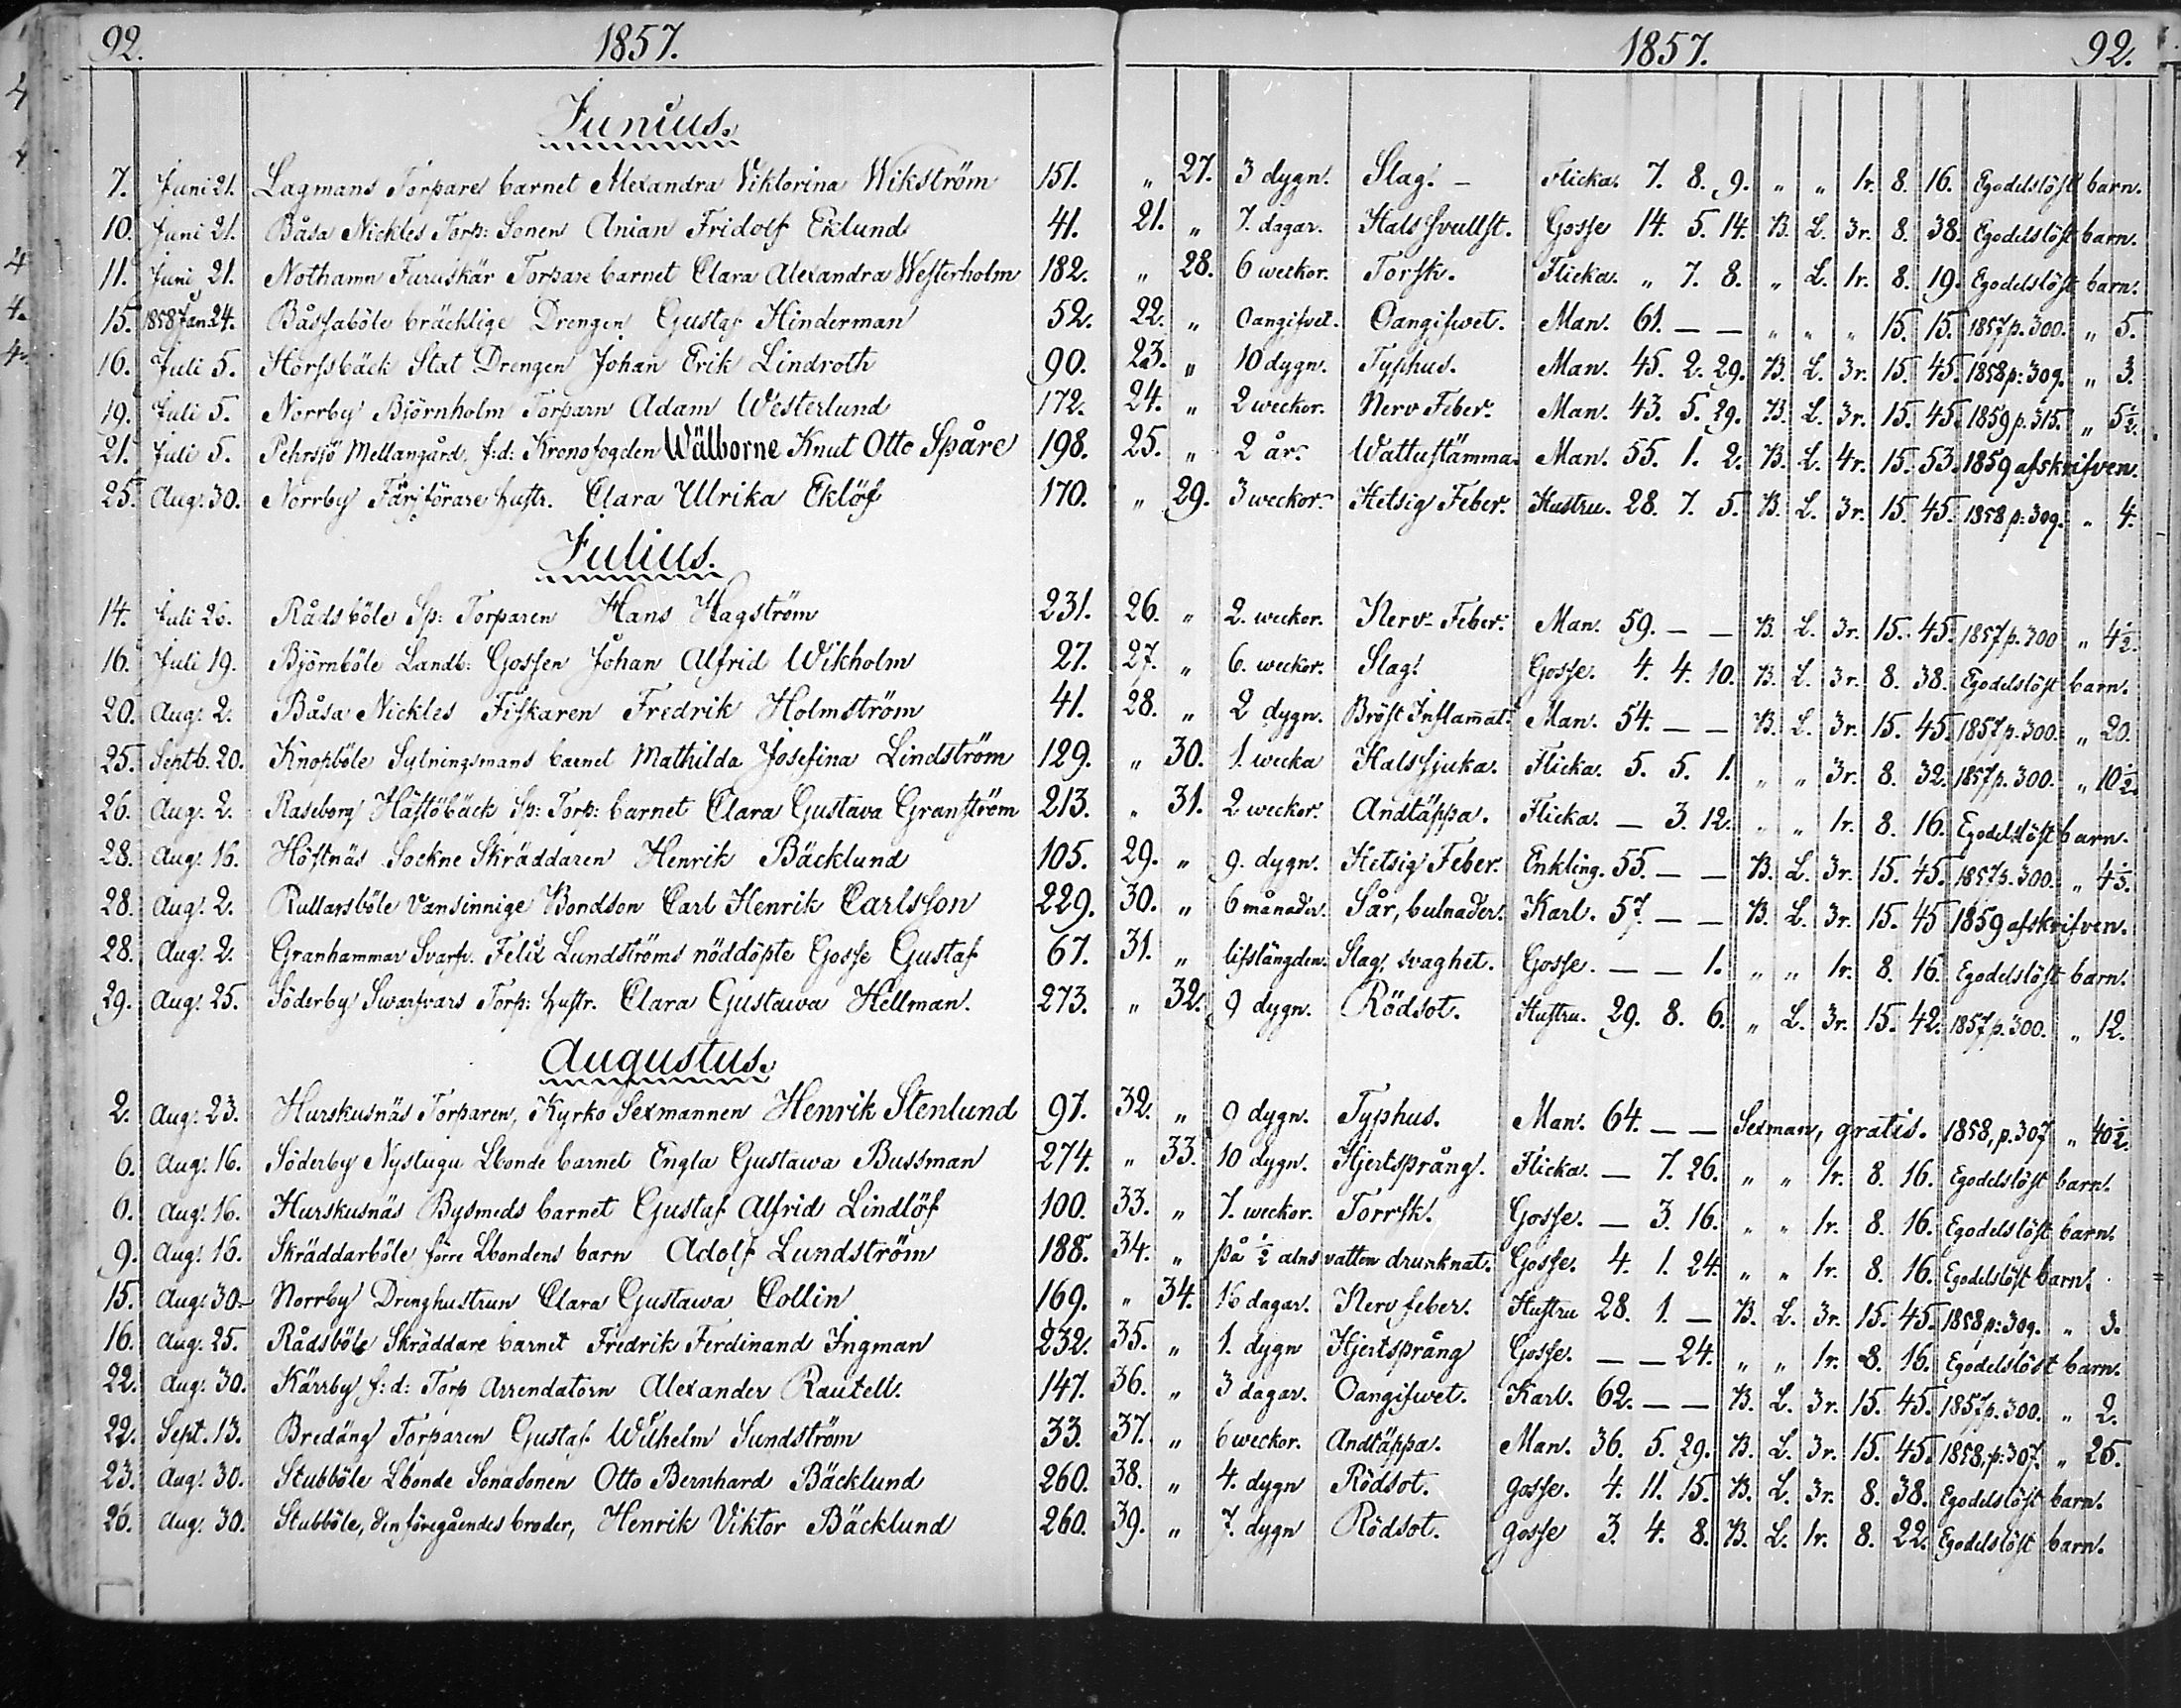 92. 1857. 1857. 92.
Junius.
7. Juni 21. Lagmans Torpare barnet Alexandra Viktorina Wikström 151. „ 27. 3 dygn. Slag. – Flicka. 7. 8. 9. „ „ 1r. 8. 16. Egodelslöst barn.
10. Juni 21. Båsa Nickles Torp: Sonen Anian Fridolf Eklund 41. 21. „ 7. dagar. Halssvullst. Gosse 14. 5. 14. B. L. 3r. 8. 38. Egodelslöst barn.
11. Juni 21. Nothamn Furuskär Torpare barnet Clara Alexandra Westerholm 182. „ 28. 6 weckor. Torsk. Flicka. „ 7. 8. „ L. 1r. 8. 19. Egodelslöst barn.
15. 1858 Jan. 24. Båssaböle bräcklige Drengen Gustaf Hinderman 52. 22. „ Oangifvet. Oangifwet. Man. 61. – – „ „ „ 15. 15. 1857 p. 300. „ 5.
16. Juli 5. Horssbäck Stat Drengen Johan Erik Lindroth 90. 23. „ 10 dygn. Typhus. Man. 45. 2. 29. B. L. 3r. 15. 45. 1858 p: 309. „ 3.
19. Juli 5. Norrby Björnholm Torparn Adam Westerlund 172. 24. „ 2 weckor. Nerv Feber. Man. 43. 5. 29. B. L. 3r. 15. 45. 1859 p. 315. „ 5½.
21. Juli 5. Pehrsjö Mellangård, f:d: Kronofogden Wälborne Knut Otto Spåre 198. 25. „ 2 år. Wattustämma. Man. 55. 1. 2. B. L. 4r. 15. 53. 1859 afskrifven.
25. Aug. 30. Norrby Färjförare hustr. Clara Ulrika Eklöf 170. „ 29. 3 weckor. Hetsig Feber. Hustru. 28. 7. 5. B. L. 3r. 15. 45. 1858 p: 309. „ 4.
Julius.
14. Juli 26. Rådsböle Sp: Torparen Hans Hagström 231. 26. „ 2. weckor. Nerv-Feber. Man. 59. – – B. L. 3r. 15. 45. 1857 p. 300 „ 4½.
16. Juli 19. Björnböle Landb: Gossen Johan Alfrid Wikholm 27. 27. „ 6. weckor. Slag. Gosse. 4. 4. 10. B. L. 3r. 8. 38. Egodelslöst barn.
20. Aug. 2. Båsa Nickles Fiskaren Fredrik Holmström 41. 28. „ 2 dygn. Bröst Inflam̅at. Man. 54. – – B. L. 3r. 15. 45. 1857 p. 300. „ 20.
25. Septb. 20. Knopböle Sytningsmans barnet Mathilda Josefina Lindström 129. „ 30. 1. wecka Halssjuka. Flicka. 5. 5. 1. „ „ 3r. 8. 32. 1857 p. 300. „ 10½.
26. Aug. 2. Raseborg Hästöbäck Sp: Torp: barnet Clara Gustava Granström 213. „ 31. 2 weckor. Andtäppa. Flicka. – 3. 12. „ „ 1r. 8. 16. Egodelslöst barn.
28. Aug. 16. Höstnäs Sockne Skräddaren Henrik Bäcklund 105. 29. „ 9. dygn. Hetsig Feber. Enkling. 55. – – B. L. 3r. 15. 45. 1857 p. 300. „ 4⅓.
28. Aug. 2. Rullarsböle vansinnige Bondson Carl Henrik Carlsson 229. 30. „ 6 månader. Sår, bulnader. Karl. 57. – – B. L. 3r. 15. 45 1859 afskrifven.
28. Aug. 2. Granhammar Svarfv. Felix Lundströms nöddöpte Gosse Gustaf 67. 31. „ lifslängden. Slag, svaghet. Gosse. – – 1. „ „ 1r. 8. 16. Egodelslöst barn.
29. Aug. 25. Söderby Swarfvars Torp: hustr. Clara Gustawa Hellman. 273. „ 32. 9 dygn. Rödsot. Hustru. 29. 8. 6. „ L. 3r. 15. 42. 1857 p. 300. „ 12.
Augustus.
2. Aug. 23. Hurskusnäs Torparen, Kyrko Sexmannen Henrik Stenlund 97. 32. „ 9 dygn. Typhus. Man. 64. – – Sexman, gratis. 1858, p. 307 „ 40½.
6. Aug. 16. Söderby Nystugu Lbonde barnet Engla Gustawa Bussman 274. „ 33. 10 dygn. Hjertsprång. Flicka. – 7. 26. „ „ 1r. 8. 16. Egodelslöst barn.
6. Aug. 16. Hurskusnäs Bysmeds barnet Gustaf Alfrid Lindlöf 100. 33. „ 7. weckor. Torrsk. Gosse. – 3. 16. „ „ 1r. 8. 16. Egodelslöst barn.
9. Aug. 16. Skräddarböle förre Lbondens barn Adolf Lundström 188. 34. „ på ½ alns vatten drunknat. Gosse. 4. 1. 24. „ „ 1r. 8. 16. Egodelslöst barn.
15. Aug. 30. Norrby Drenghustrun Clara Gustawa Collin 169. „ 34. 16 dagar. Nerv feber. Hustru 28. 1. – B. L. 3r. 15. 45. 1858 p: 309. „ 3.
16. Aug. 25. Rådsböle Skräddare barnet Fredrik Ferdinand Ingman 232. 35. „ 1. dygn Hjertsprång Gosse. – – 24. „ „ 1r. 8. 16. Egodelslöst barn.
22. Aug. 30. Kärrby f:d: Torp Arrendatorn Alexander Rautell. 147. 36. „ 3 dagar. Oangifwet. Karl. 62. – – B. L. 3r. 15. 45. 1857 p. 300. „ 2.
22. Sept. 13. Bredäng Torparen Gustaf Wilhelm Sundström 33. 37. „ 6 weckor. Andtäppa. Man. 36. 5. 29. B. L. 3r. 15. 45. 1858, p: 307. „ 25.
23. Aug. 30. Stubböle Lbonde Sonasonen Otto Bernhard Bäcklund 260. 38. „ 4. dygn Rödsot. gosse. 4. 11. 15. B. L. 3r. 8. 38. Egodelslöst barn.
26. Aug. 30. Stubböle, den föregåendes broder, Henrik Viktor Bäcklund 260. 39. „ 7. dygn Rödsot. gosse 3. 4. 8. B. L. 1r. 8. 22. Egodelslöst barn.